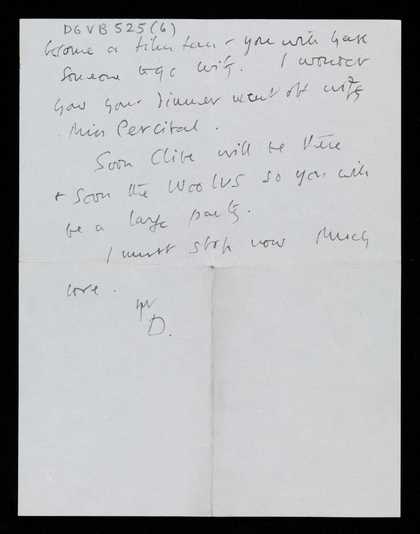 DGVB 525 (6)
become a film fan & you will have
someone to go with. I wonder
how your dinner went off with
Miss Percival.
Soon Clive will be there
& soon the Woolves so you will
be a large party.
I must stop now Much
love.
D.